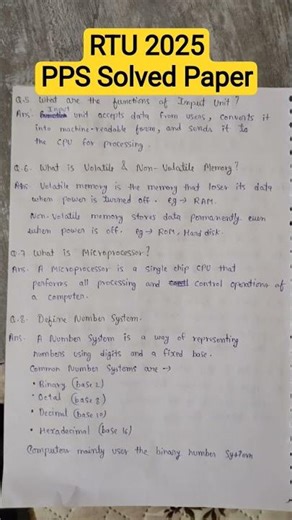 RTU 2025
PPS Solved Paper
Q.5. What are the functions of Input Unit?
Input
Ans. unit accepts data from users, converts it
into machine-readable form, and sends it to
the CPU for processing.
Q.6. What is Volatile & Non-Volatile Memory?
Ans Volatile memory is the memory that loses its data
when power is turned off. eg → RAM.
Non-Volatile memory stores data permanently even
when power is off. eg → ROM, Hard disk.
Q.7. What is Microprocessor?
Ans. A Microprocessor is a single chip CPU that
performs all processing and control operations of
a computer.
Q.8. Define Number System.
Ans. A Number System is a way of representing
numbers using digits and a fixed base.
Common Number Systems are →
• Binary (base 2)
• Octal (base 8)
• Decimal (base 10)
• Hexadecimal (base 16)
Computers mainly uses the binary number system